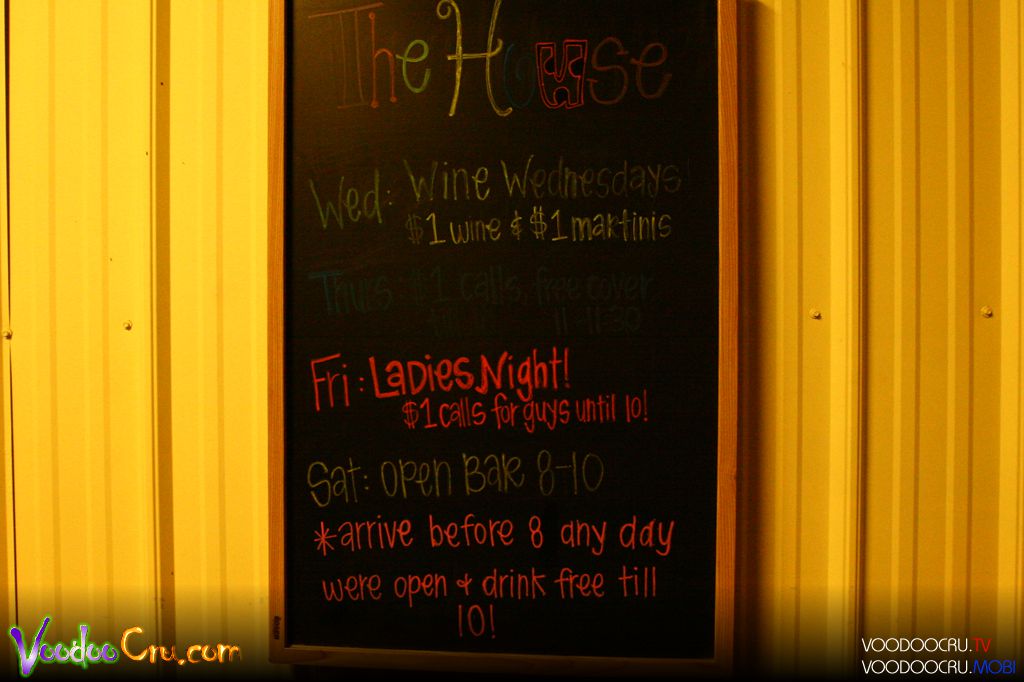 The House
Wed: Wine Wednesdays!
$1 wine & $1 martinis
Thurs: $1 calls, free cover
11-11:30
Fri: Ladies Night!
$1 calls for guys until 10!
Sat: Open Bar 8-10
*arrive before 8 any day
were open & drink free till
10!
VoodooCru.com
VOODOOCRU.TV
VOODOOCRU.MOBI